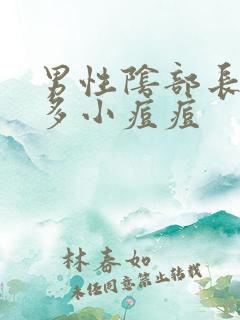 男性陰部長
多小痘痘
林春如
未经同意禁止转载